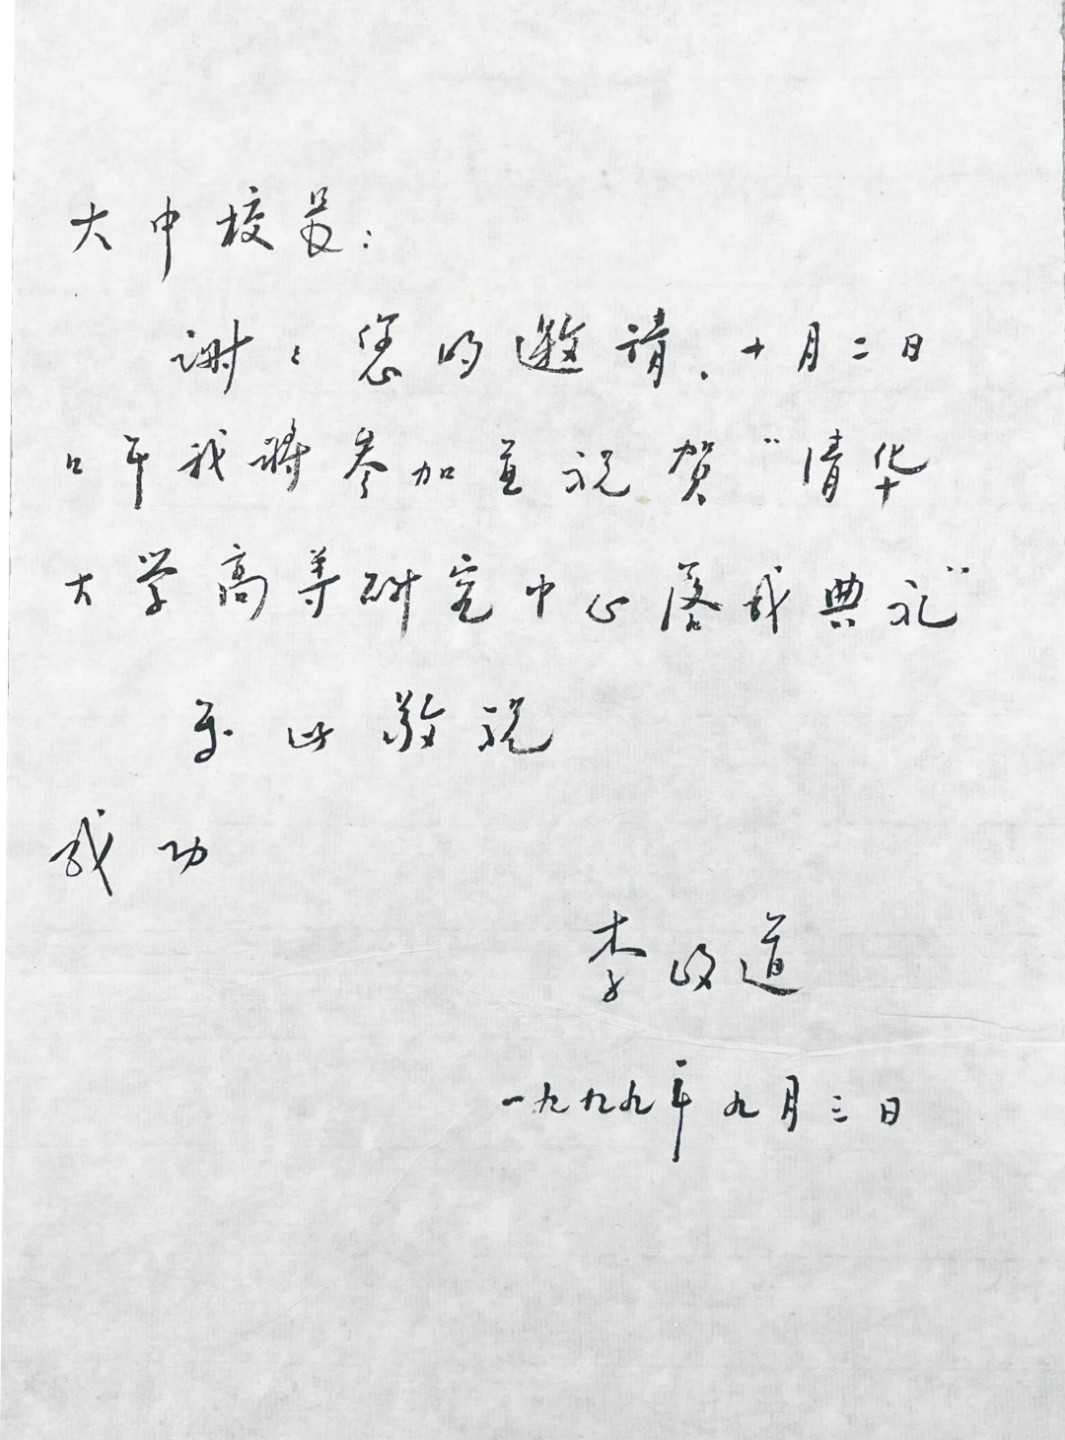 大中校长：
谢谢您的邀请．十月二日
下午我将参加并祝贺“清华
大学高等研究中心落成典礼”
专此敬祝
成功
李政道
一九九九年九月三日